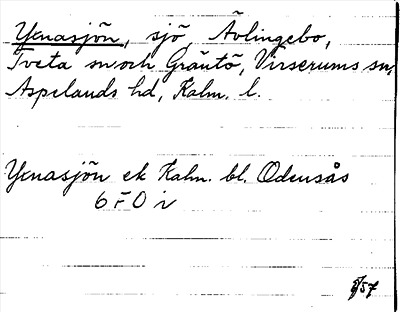 Yxnasjön, sjö Åvlingebo,
Tveta sn och Gräntö, Virserums sn,
Aspelands hd, Kalm. l.
Yxnasjön ek Kalm. bl. Odensås
6 F 0 i
57